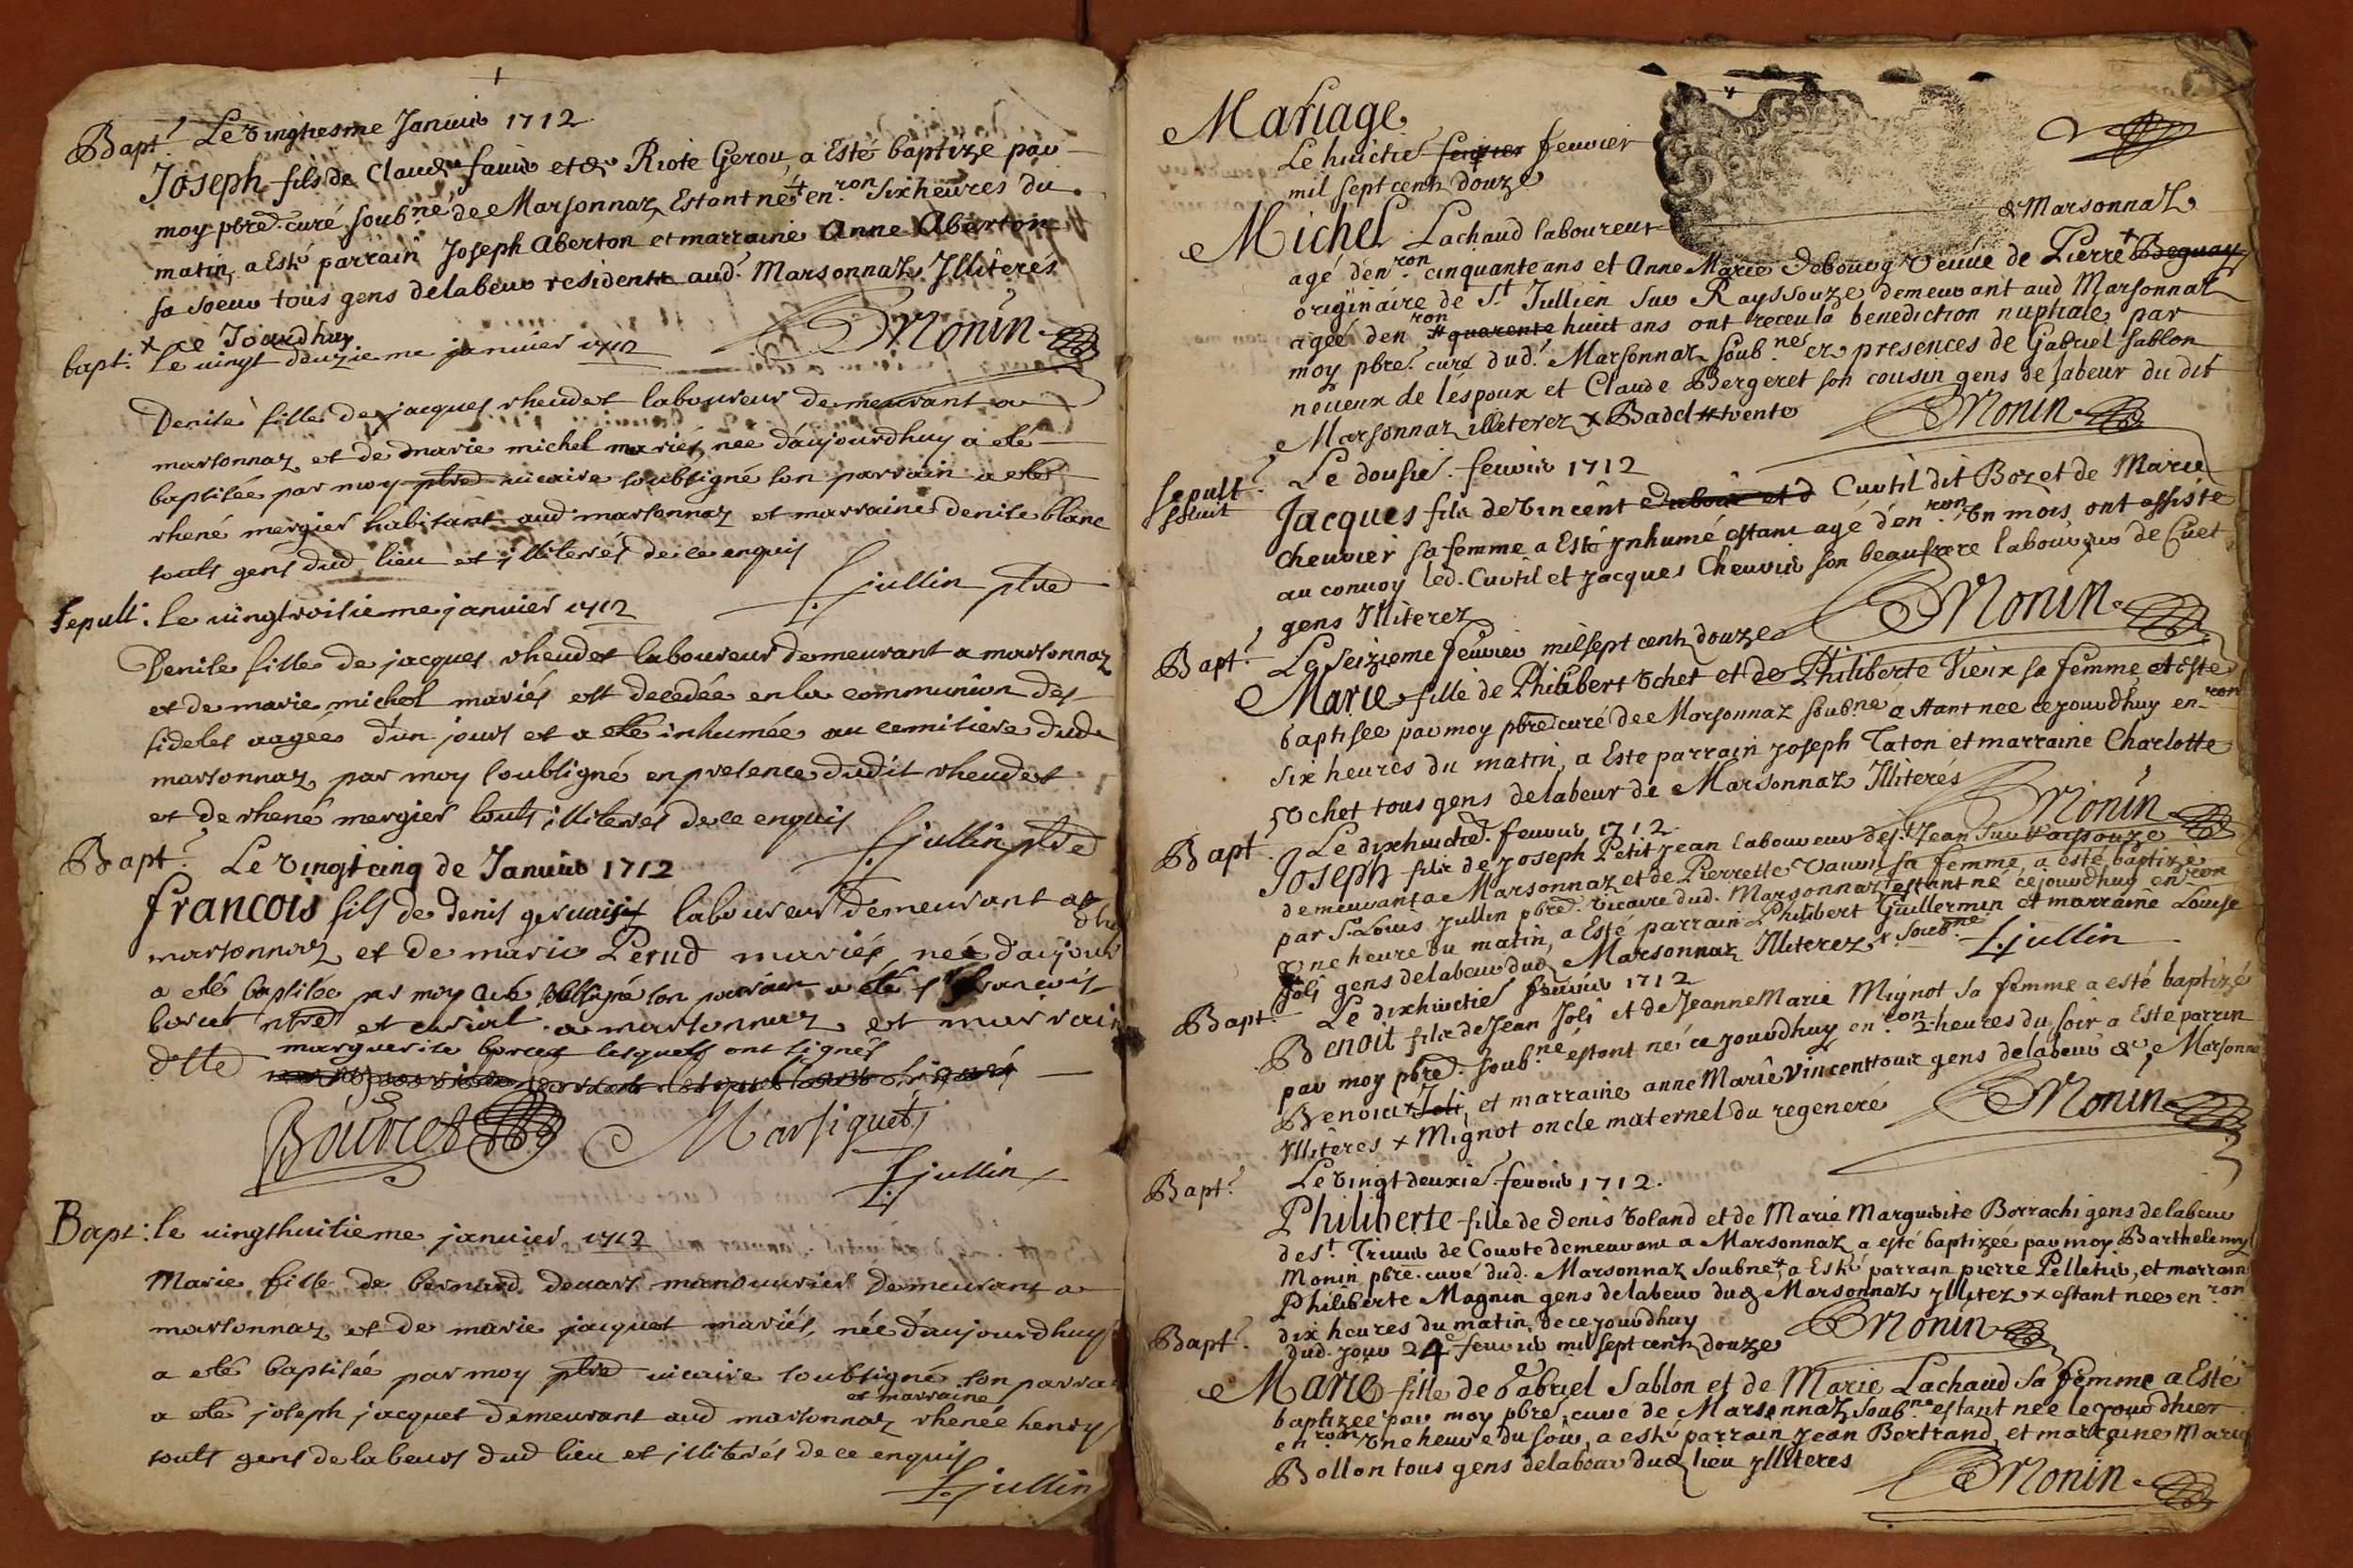 Bapt? Le vingtiesme Janvier 1712
Joseph fils de Claude favie et de Riote Gerou, a Esté baptizé par
moy pbre. curé soub.né de Marsonnaz Estant né + en.ron six heures du
matin, a Esté parrain Joseph Aberton et marraine Anne Abarton
sa soeur tous gens delabeur residents aud. Marsonnaz Illiterés
x ce Jourdhuy
BMonin
bapt: le vingt douzieme janvier 1712
Denise fille de jacques rheudet laboureur demeurant a
marsonnaz et de marie michel mariés, nee d'aujourdhuy a eté
baptisée par moy pbre vicaire soubsigné son parrain a eté
rhené mergier habitant aud marsonnaz et marraine denise blanc
touts gens dud lieu et jlliterés de ce enquis
L. jullin pbre
sepult: le vingtroisieme janvier 1712
Denise fille de jacques rheudet laboureur demeurant a marsonnaz
et de marie michel mariés est decedée en la communion des
fideles aagée d'un jours et a eté inhumée au cemitiere dud
marsonnaz par moy soubsigné en presence dudit rheudet
et de rhené mergier touts jlliterés de ce enquis
L. jullin pbre
Bapt? Le vingt cinq de Janvier 1712
francois fils de denis gervais laboureur demeurant a
marsonnaz et de marie Perud mariés, née d'aujour dhuy
a eté baptisée par moy soubsigné son parrain a eté francois
borcet pbre et curial a marsonnaz et marrain
dlle marguerite borcet lesquels ont signés
Bourcet Marsiquet
L. jullin
Bapt: le vingthuitieme janvier 1712
Marie fille de bernard devars manouvrier demeurant a
marsonnaz et de marie jacquet mariés, née d'aujourdhuy
a eté baptisée par moy pbre vicaire soubsigné son parra
a eté joseph jacquet demeurant aud marsonnaz et marraine rhenée henry
touts gens de labeurs dud lieu et jlliterés de ce enquis
L. jullin
Mariage
Le huictie fevrier fevrier
mil sept cents douze
Michel Lachaud laboureur de Marsonnaz
agé d'en.ron cinquante ans et Anne Marie Debourg veuve de Pierre + Beguay
originaire de St Jullien sur Rayssouze demeurant aud Marsonnaz
agée den.ron quarente huict ans ont receu la benediction nuptiale par
moy pbre. curé dud. Marsonnaz soub.né ez presences de Gabriel Sablon
neveux de lépoux et Claude Bergeret son cousin gens de labeur du dit
Marsonnaz illiterez x Badel
BMonin
Sepult? Le dousie. fevrier 1712
Jacques fils de vincent Curtil dit Bozet de Marie
Cheuvier sa femme a Esté ynhumé estant agé d'en.ron Un mois ont assisté
au convoy led. Curtil et Jacques Cheuvier son beaufrere laboureurs de Cuet
gens Illiterez
BMonin
Bapt? Le seizieme fevrier mil sept cents douze
Marie fille de Philibert Vchet et de Philiberte Vieux sa femme a Este
baptisee par moy pbre curé de Marsonnaz soub.né estant nee ce jourdhuy en.ron
six heures du matin, a Esté parrain Joseph Taton et marraine Charlotte
Vchet tous gens delabeur de Marsonnaz Illiterés
BMonin
Bapt? Le dixhuictie. fevrier 1712
Joseph fils de Joseph Petit jean laboureur de St Jean sur Raissouze
demeurant a Marsonnaz et de Pierrette Vauvi sa femme, a esté baptizé
par S. Louis Jullin pbre. vicaire dud. Marsonnaz estant né ce jourdhuy en.ron
Une heure du matin, a Esté parrain Philibert Guillermin et marraine Louise
Joli gens delabeur dud Marsonnaz Illiterez x soub.né
L. jullin
Bapt. Le dixhuictie fevrier 1712
Benoit fils de Jean Joli et de Jeanne Marie Mignot sa femme a esté baptizé
par moy pbre. soub.né estant né ce jourdhuy en.ron 2 heures du soir a Este parrin
Benoit x Joli, et marraine anne Marie Vincent tour gens delabeur de Marsonna
Illiteres x Mignot oncle maternel du regeneré
BMonin
Bapt? Le vingt deuxie. fevrier 1712.
Philiberte fille de denis Voland et de Marie Marguerite Borrachi gens delabeur
de St. Trivier de Courte demeurant a Marsonnaz a esté baptizée par moy Barthelemy
Monin pbre. curé dud. Marsonnaz soubné, a Esté parrain pierre Pelletier, et marrain
Philiberte Magnin gens delabeur dud Marsonnaz ylliterez x estant nee en.ron
dix heures du matin, de ce jourdhuy
BMonin
Bapt? dud. jour 24e fevrier mil sept cents douze
Marie fille de Gabriel Sablon et de Marie Lachaud sa femme a Esté
baptizee par moy pbre. curé de Marsonnaz soub.né estant nee le jourdhier
en.ron Une heure du soir, a esté parrain Jean Bertrand, et marraine Marie
Bollon tous gens delabeur dud lieu ylliteres
BMonin